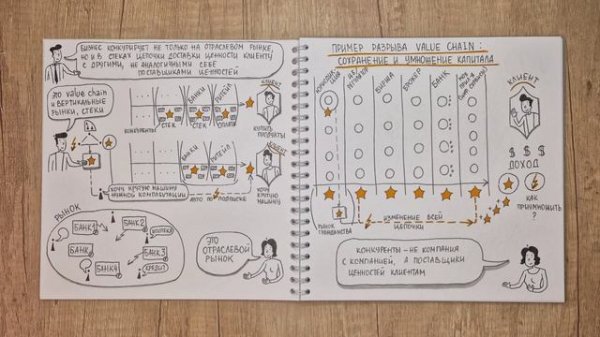 БИЗНЕС КОНКУРИРУЕТ НЕ ТОЛЬКО НА ОТРАСЛЕВОМ РЫНКЕ,
НО И В СТЕКАХ ЦЕПОЧКИ ДОСТАВКИ ЦЕННОСТИ КЛИЕНТУ
С ДРУГИМИ, НЕ АНАЛОГИЧНЫМИ СЕБЕ
ПОСТАВЩИКАМИ ЦЕННОСТЕЙ
ЭТО value chain
И ВЕРТИКАЛЬНЫЕ
РЫНКИ, СТЕКИ
БАНКИ
РИТЕЙЛ
КЛИЕНТ
КОНКУРЕНТЫ
СТЕК
СТЕК
ОПЛАТА
КУПИТЬ
ПРОДУКТЫ
БАНКИ
РИТЕЙЛ
КЛИЕНТ
ХОЧУ КРУТУЮ МАШИНУ
НУЖНОЙ КОМПЛЕКТАЦИИ
АВТО ПО ПОДПИСКЕ
ХОЧУ
КРУТУЮ
МАШИНУ
РЫНОК
БАНК1
БАНК2
ИПОТЕКА
БАНК
БАНК3
БАНК4
КРЕДИТ
ЭТО
ОТРАСЛЕВОЙ
РЫНОК
ПРИМЕР РАЗРЫВА VALUE CHAIN:
СОХРАНЕНИЕ И УМНОЖЕНИЕ КАПИТАЛА
БИРЖА
БРОКЕР
БАНК
КЛИЕНТ
$ $ $
ДОХОД
КАК
ПРИУМНОЖИТЬ
?
РЫНОК
ГРАЖДАНСТВА
ИЗМЕНЕНИЕ ВСЕЙ
ЦЕПОЧКИ
КОНКУРЕНТЫ – НЕ КОМПАНИЯ
С КОМПАНИЕЙ, А ПОСТАВЩИКИ
ЦЕННОСТЕЙ КЛИЕНТАМ